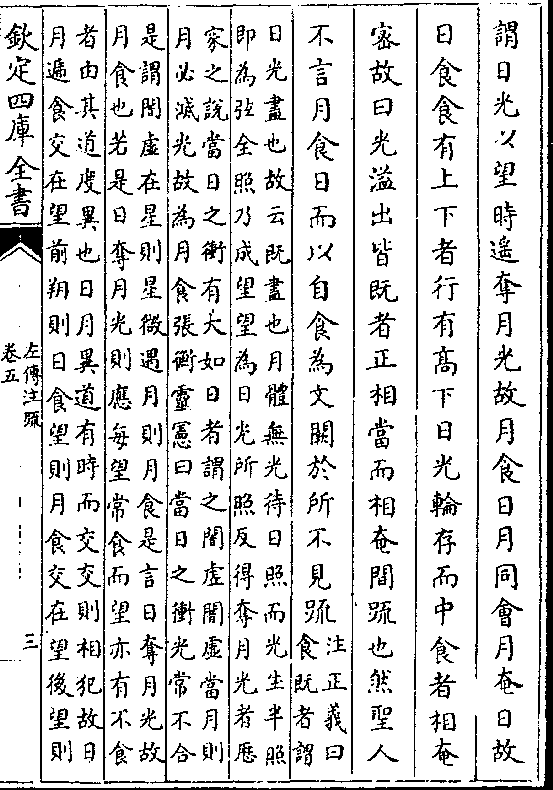 謂日光以望時遥奪月光故月食日月同會月奄日故
日食食有上下者行有髙下日光輪存而中食者相奄
宻故日光溢出皆既者正相當而相奄間踈也然聖人
不言月食日而以自食為文闕於所不見䟽
注正義曰
食既者謂
日光盡也故云既盡也月體無光待日照而光生半照
即為弦全照乃成望望為日光所照反得奪月光者厯
家之說當日之衝有大如日者謂之闇虛闇虛當月則
月必滅光故為月食張衡靈憲曰當日之衝光常不合
是謂闇虛在星則星微遇月則月食是言日奪月光故
月食也若是日奪月光則應每望常食而望亦有不食
者由其道度異也日月異道有時而交交則相犯故日
月遞食交在望前朔則日食望則月食交在望後望則
欽定四庫全書
左傳注疏
卷五
三